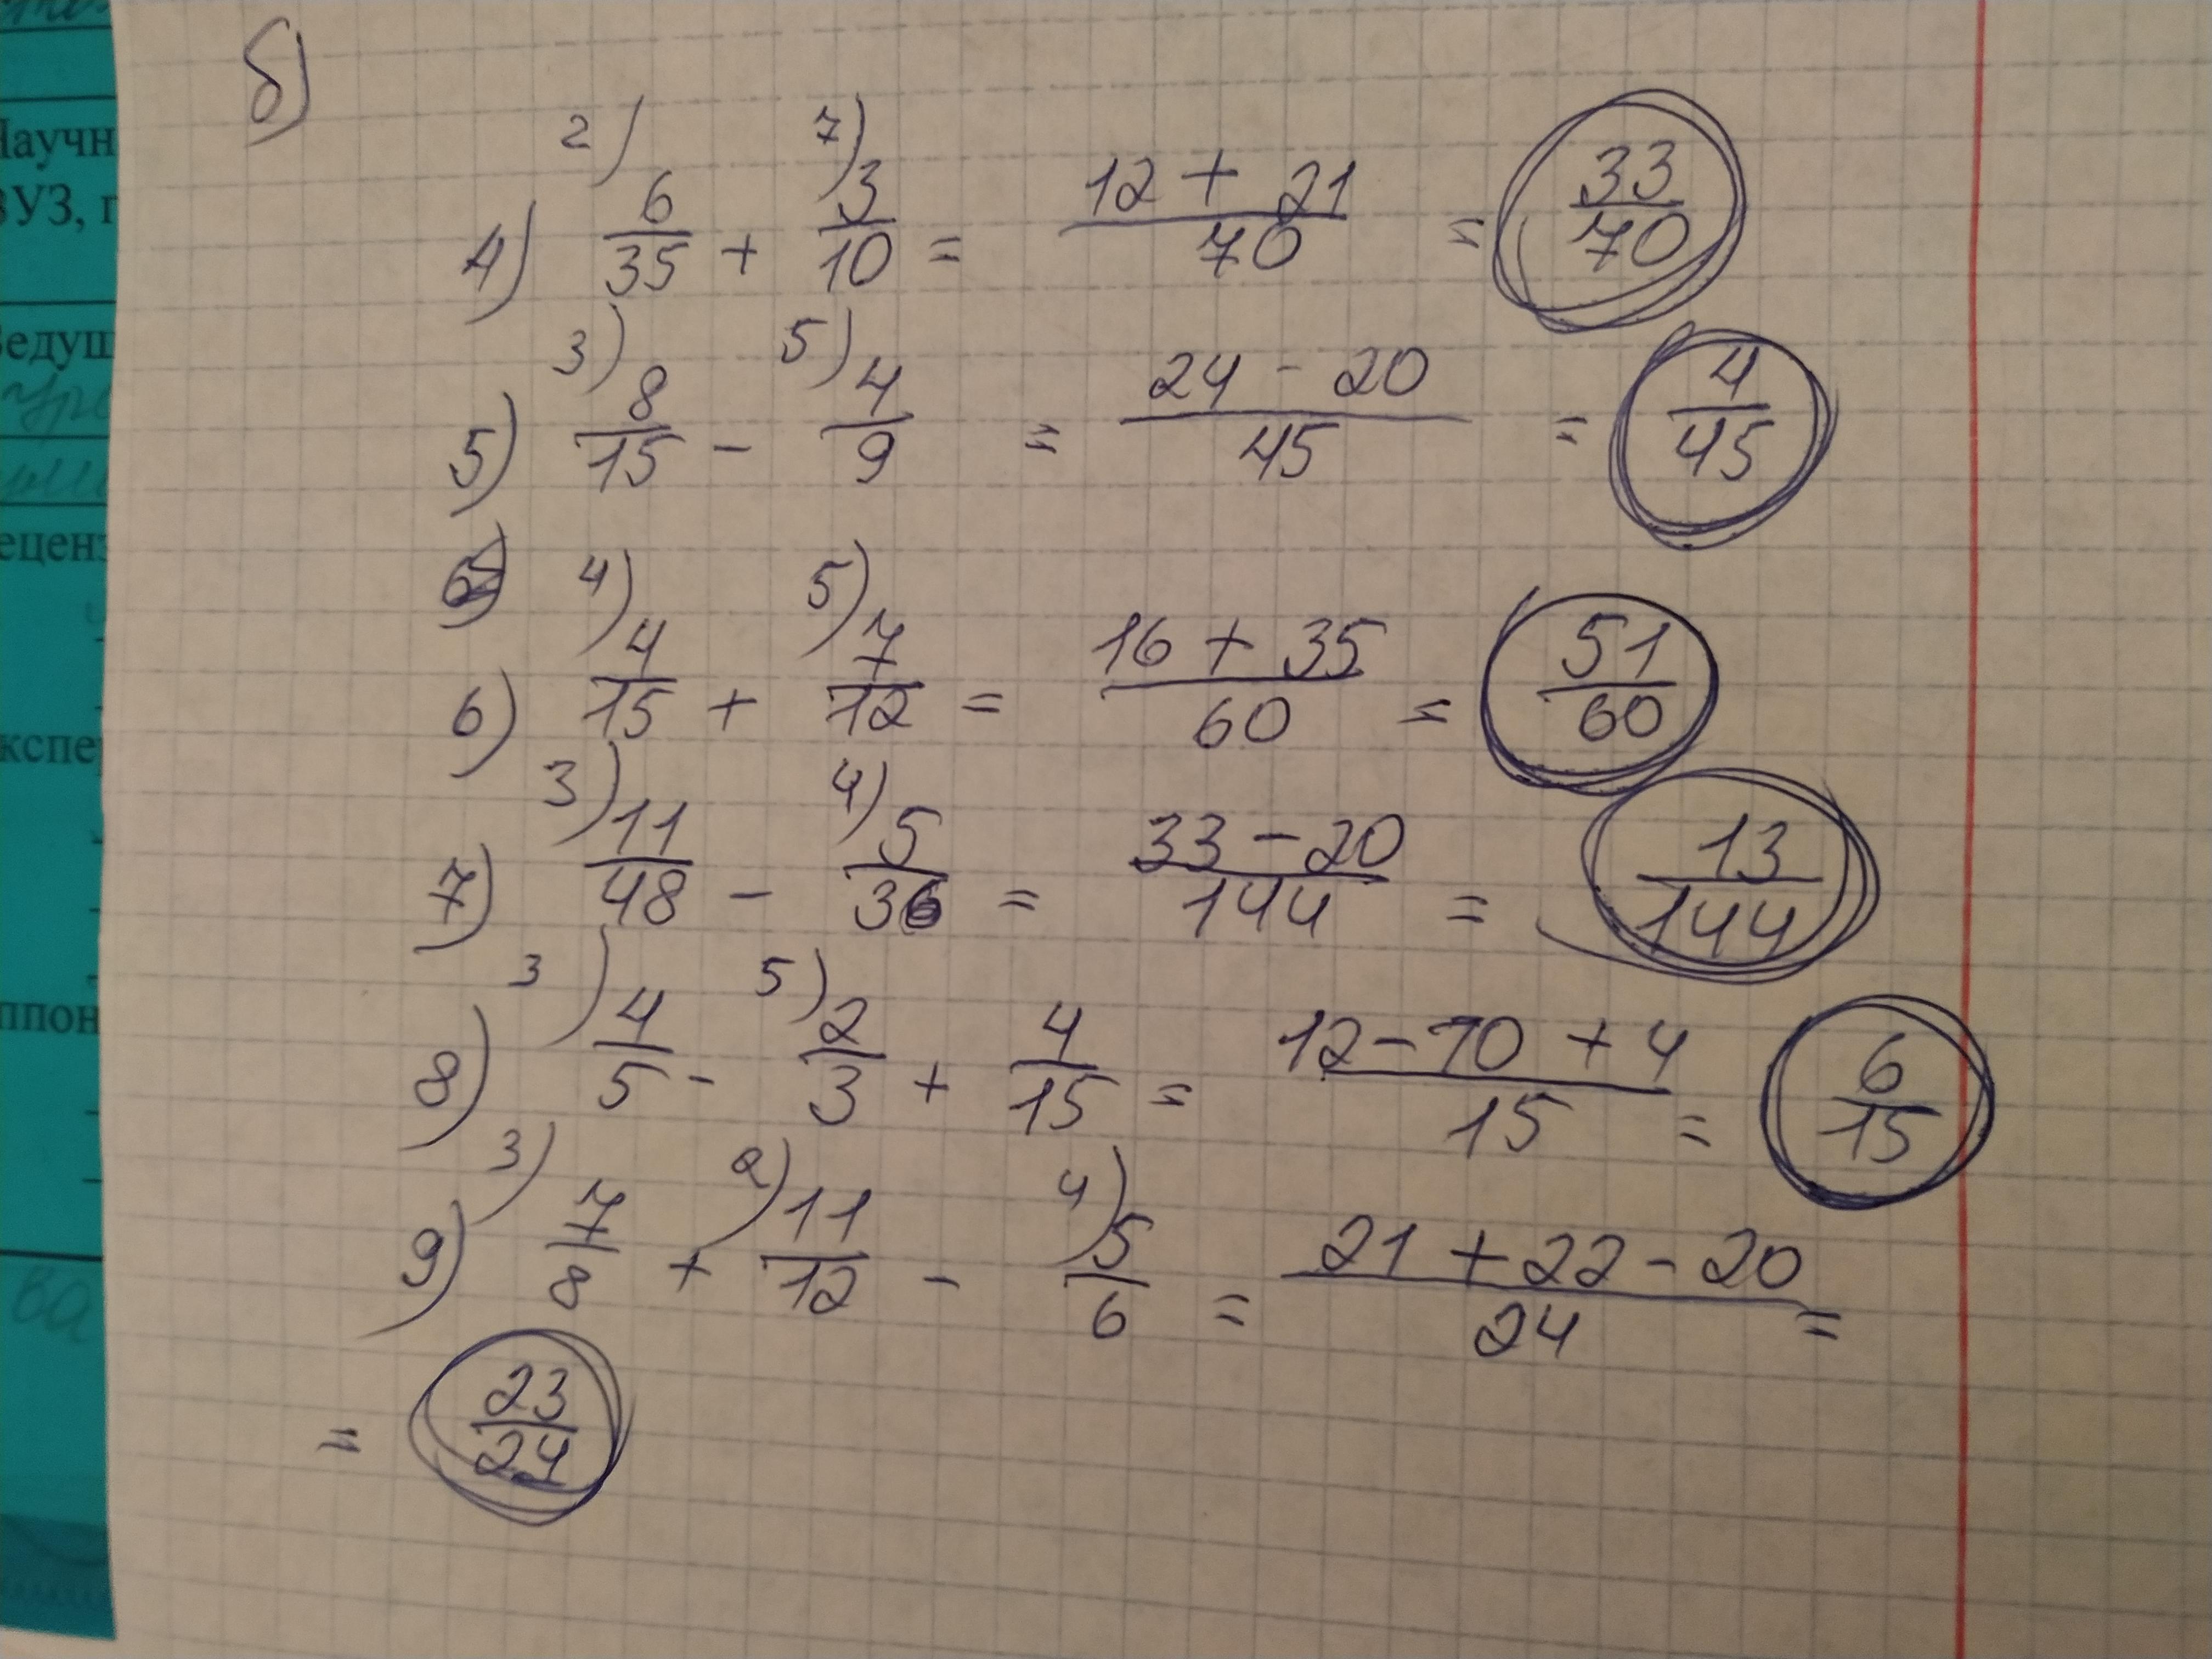 Научн
ВУЗ, г
Ведущ
еценз
кспер
ппон
ва
б)
4) 2) 6/35 + 7) 3/10 = (12 + 21)/70 = 33/70
5) 3) 8/15 - 5) 4/9 = (24 - 20)/45 = 4/45
6) 4) 4/15 + 5) 7/12 = (16 + 35)/60 = 51/60
7) 3) 11/48 - 4) 5/36 = (33 - 20)/144 = 13/144
8) 3) 4/5 - 5) 2/3 + 4/15 = (12 - 10 + 4)/15 = 6/15
9) 3) 7/8 + 2) 11/12 - 4) 5/6 = (21 + 22 - 20)/24 =
= 23/24